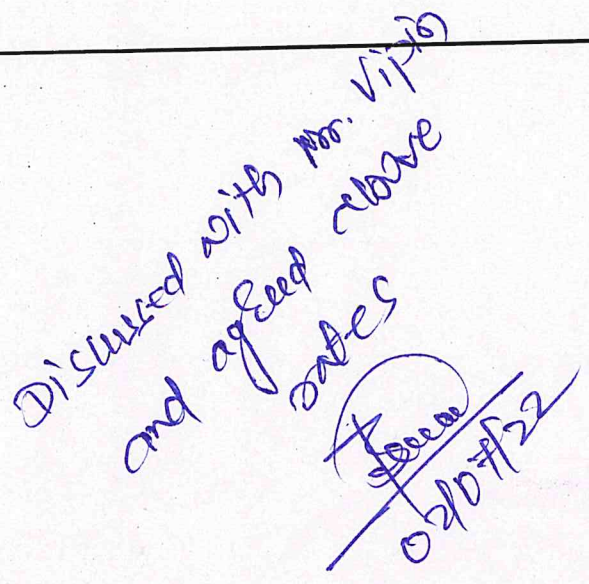 Discussed with Mr. Vipin
and agreed above
rates
02/07/22